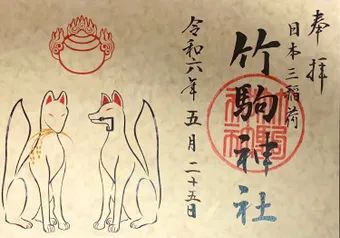 奉拝
日本三稲荷
竹駒神社
令和六年五月二十五日